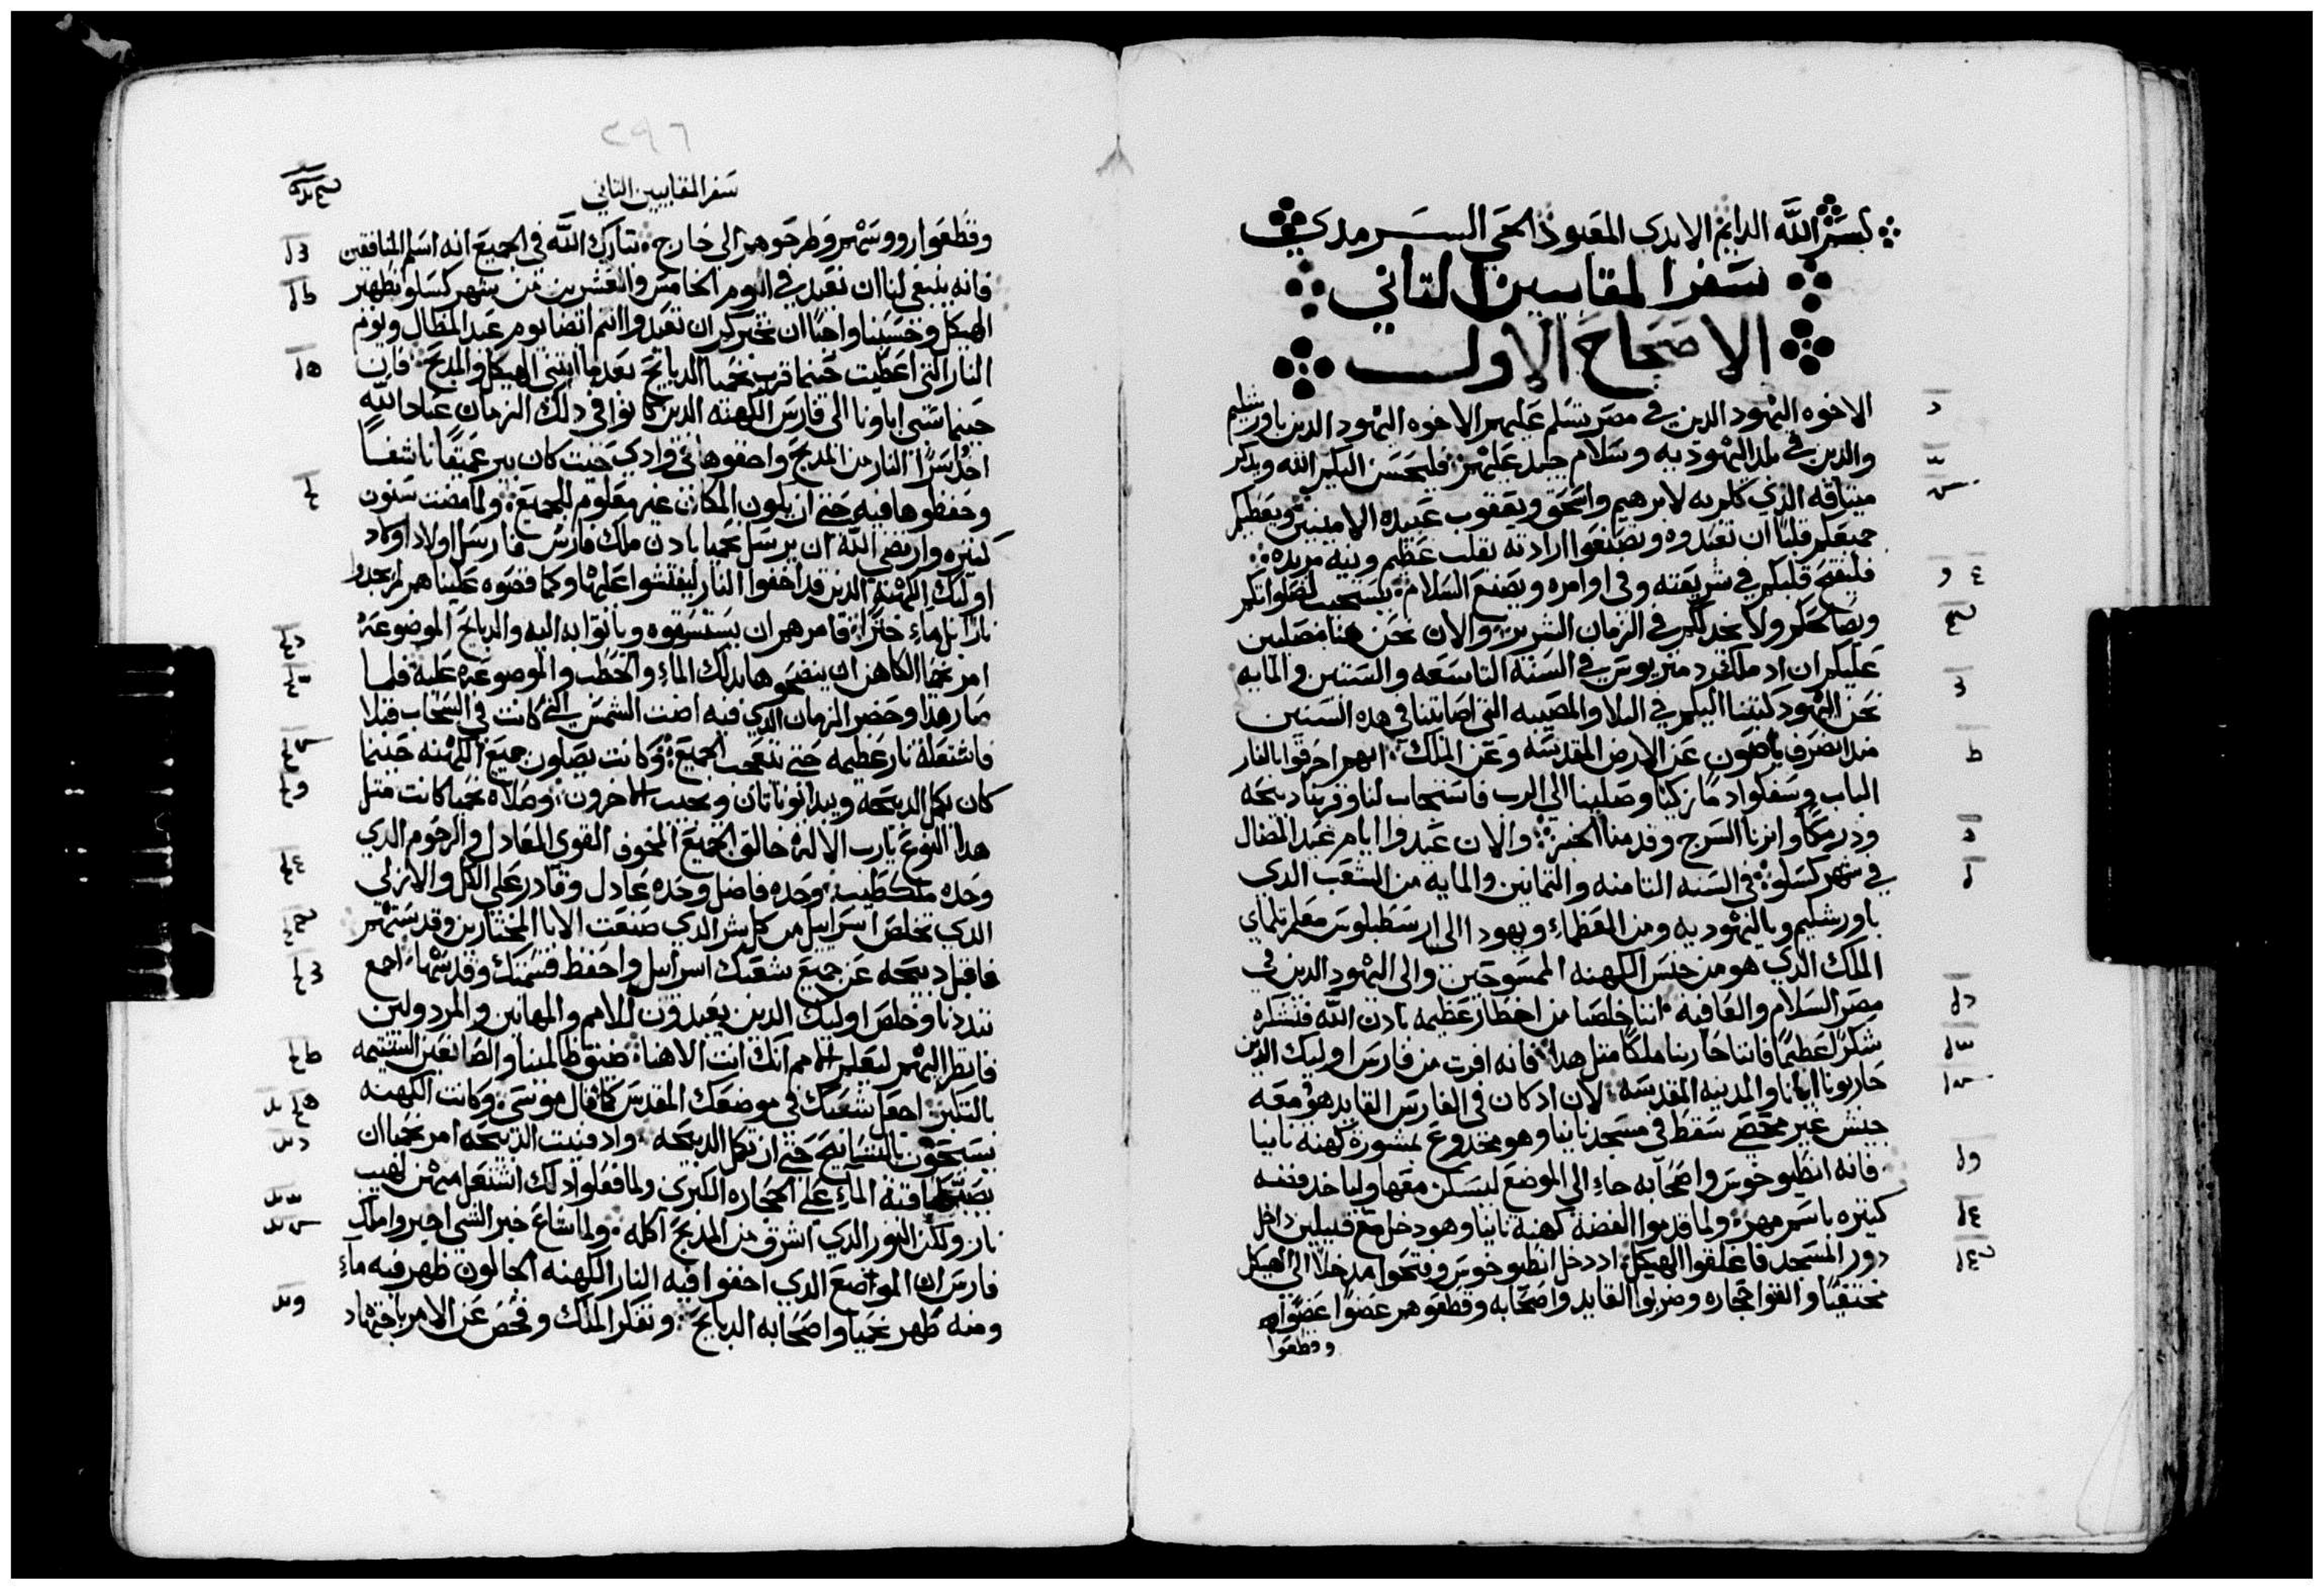 بسم الله الدايم الابدي المعبود الحي السرمدي
سفر المقابيين التاني
الاصحاح الاول
الاخوه اليهود الدين في مصر يسلم عليهم الاخوه اليهود الدين باورشليم
والدين في بلد اليهوديه وسلام جيد عليهم فليحسن اليكم الله ويدكر
ميتاقه الدي كلم به لابرهيم واسحق ويعقوب عبيده الامينين ويعطيكم
جميعكم قلبًا ان تعبدوه وتصنعوا ارادته بقلب عظيم ونيه مريده
فليفتح قلبكم في شريعته وفي اوامره ويصنع السلام يستجيب لصلواتكم
ويصالحكم ولا يخدلكم في الزمان الشرير والان نحن هنا مصليين
عليكم ان اد ملك دمتريوس في السنه التاسعه والستين والمايه
نحن اليهود كتبنا اليكم في البلا والمصيبه التي اصابتنا في هده السنين
مند انصرف ياصون عن الارض المقدسه وعن الملك انهم احرقوا بالنار
الباب وسفكوا دمًا زكيًا وصلينا الي الرب فاستجاب لنا وقربنا دبيحه
ودرمكًا وانرنا السرج وقدمنا الخبز والان عيدوا ايام عيد المضال
في شهر كسلو في السنه التامنه والتمانين والمايه من الشعب الدي
باورشليم وباليهوديه ومن العظماء ويهودا الي ارسطبلوس معلم تلماي
الملك الدي هو من جنس الكهنه الممسوحين والي اليهود الدين في
مصر السلام والعافيه اننا خلصنا من اخطار عظيمه بادن الله فنشكره
شكرًا عظيمًا فاننا حاربنا ملكًا متل هدا فانه افرت من فارس اوليك الدين
حاربونا ايانا والمدينه المقدسه لان اد كان في الفارس القايد هو ومعه
جيش غير محصي سقط في مسجد نانيا وهو مخدوع بمشورة كهنه نانيا
فانه انطيوخوس واصحابه جاء الي الموضع ليسكن معها ولياخد فضه
كتيره باسم مهر ولما قدموا الفضه كهنه نانيا وهو دخل مع قليلين داخل
دور المسجد فاغلقوا الهيكل اد دخل انطيوخوس وفتحوا مدخلًا الي الهيكل
مختفيًا والقوا حجاره وضربوا القايد واصحابه وقطعوهم عضوًا عضوًا
وقطعوا
٢٩٦
سفر المقابيين التاني
وقطعوا رووسهم وطرحوهم الي خارج تبارك الله في الجميع انه اسلم المنافقين
فانه ينبغي لنا ان نعيد في اليوم الخامس والعشرين من شهر كسلو تطهير
الهيكل وحسبنا واجبًا ان نخبركم ان تعيدوا انتم ايضا يوم عيد المظال ويوم
النار التي اعطيت حينما قرب نحميا الدبايح بعد ما ابتني الهيكل والمدبح فان
حينما سبي اباونا الي فارس الكهنه الدين كانوا في دلك الزمان عبادا لله
اخدوا سرًا النار من المدبح واخفوها في وادي حيت كان بير عميقًا ناشفًا
وحفظوها فيه حتي ان يكون المكان غير معلوم للجميع ولما مضت سنون
كتيره وارتضي الله ان يرسل نحميا بادن ملك فارس فارسل اولاد اولاد
اوليك الكهنه الدين قد اخفوا النار ليفتشوا عليها وكما قصوه علينا هم لم يجدوا
نارًا بل ماء خترًا فامرهم ان يستسقوه وياتوا به اليه والدبايح الموضوعه
امر نحميا الكاهن ان ينضحوها بدلك الماء والحطب والموضوعه عليه فلما
صار هدا وحضر الزمان الدي فيه اضت الشمس التي كانت في السحاب قبلا
فاشتعله نار عظيمه حتي تتعجب الجميع وكانت يصلون جميع الكهنه حينما
كان تكمل الدبيحه ويبدا يوناتان ويجيب الاخرون وصلاه نحميا كانت متل
هدا النوع يارب الاله خالق الجميع المخوف القوي العادل والرحوم الدي
وحده ملك طيب وحده فاضل وحده عادل وقادر علي الكل والازلي
الدي تخلص اسراييل من كل شر الدي صنعت الابا المختارين وقدستهم
فاقبل دبيحه عن جميع شعبك اسراييل واحفظ قسمتك وقدسها اجمع
تبددنا وخلص اوليك الدين يعبدون للامم والمهانين والمردولين
فانظر اليهم ليعلم الامم انك انت الاهنا ضيق ظالمينا والصانعين الشتيمه
بالتكبر اجعل شعبك في موضعك المقدس كما قال موسي وكانت الكهنه
يسبحون بالتسابيح حتي ان تكمل الدبيحه واد فنيت الدبيحه امر نحميا ان
يصب بقية الماء علي الحجاره الكبري ولما فعلوا دلك اشتعل منهن لهيب
نار ولكن النور الدي اشرق من المدبح اكله ولما شاع خبر الشي اخبروا ملك
فارس ان المواضع الدي اخفوا فيه النار الكهنه الجالون ظهر فيه ماء
ومنه طهر نحميا واصحابه الدبايح وتفكر الملك وفحص عن الامر باجتهاد